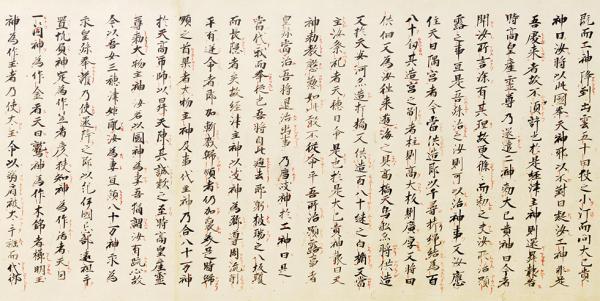 既而二神降到出雲五十田狹之小汀而問大己貴
神曰汝將以此國奉天神耶以不對曰疑汝二神非是
吾處來者故不須許也於是經津主神則還昇報告
時高皇産靈尊乃還遣二神勅大己貴神曰今者
聞汝所言深有其理故更條而勅之夫汝所治顯
露之事宜是吾孫治之汝則可以治神事又汝應
住天日隅宮者今當供造即以千尋栲繩結爲百
八十紐其造宮之制者柱則高大板則廣厚又將田
供佃又爲汝往來遊海之具高橋天鳥船亦將供造
又於天安河亦造打橋又供造百八十縫之白楯又當
主汝祭祀者天穗日命是也於是大己貴神報曰天
神勅教慇懃如此敢不從命乎吾所治顯露事者
皇孫當治吾將退治幽事乃薦岐神於二神曰是
當代我而奉從也吾將自此避去即躬披瑞之八坂瓊
而長隱者矣故經津主神以岐神爲鄕導周流削
平有逆命者即加斬戮歸順者仍加褒美是時歸
順之首渠者大物主神及事代主神乃合八十万神
於天高市帥以昇天陳其誠款之至時高皇産靈
尊勅大物主神汝若以國神爲妻吾猶謂汝有疏心故
今以吾女三穗津姫配汝爲妻宜領八十万神永爲
皇孫奉護乃使還降之即以紀伊國忌部遠祖手
置帆負神定爲作笠者彦狹知神爲作盾者天目
一箇神爲作金者天日鷲神爲作木綿者櫛明玉
神爲作玉者乃使太玉命以弱肩被太手繦而代御